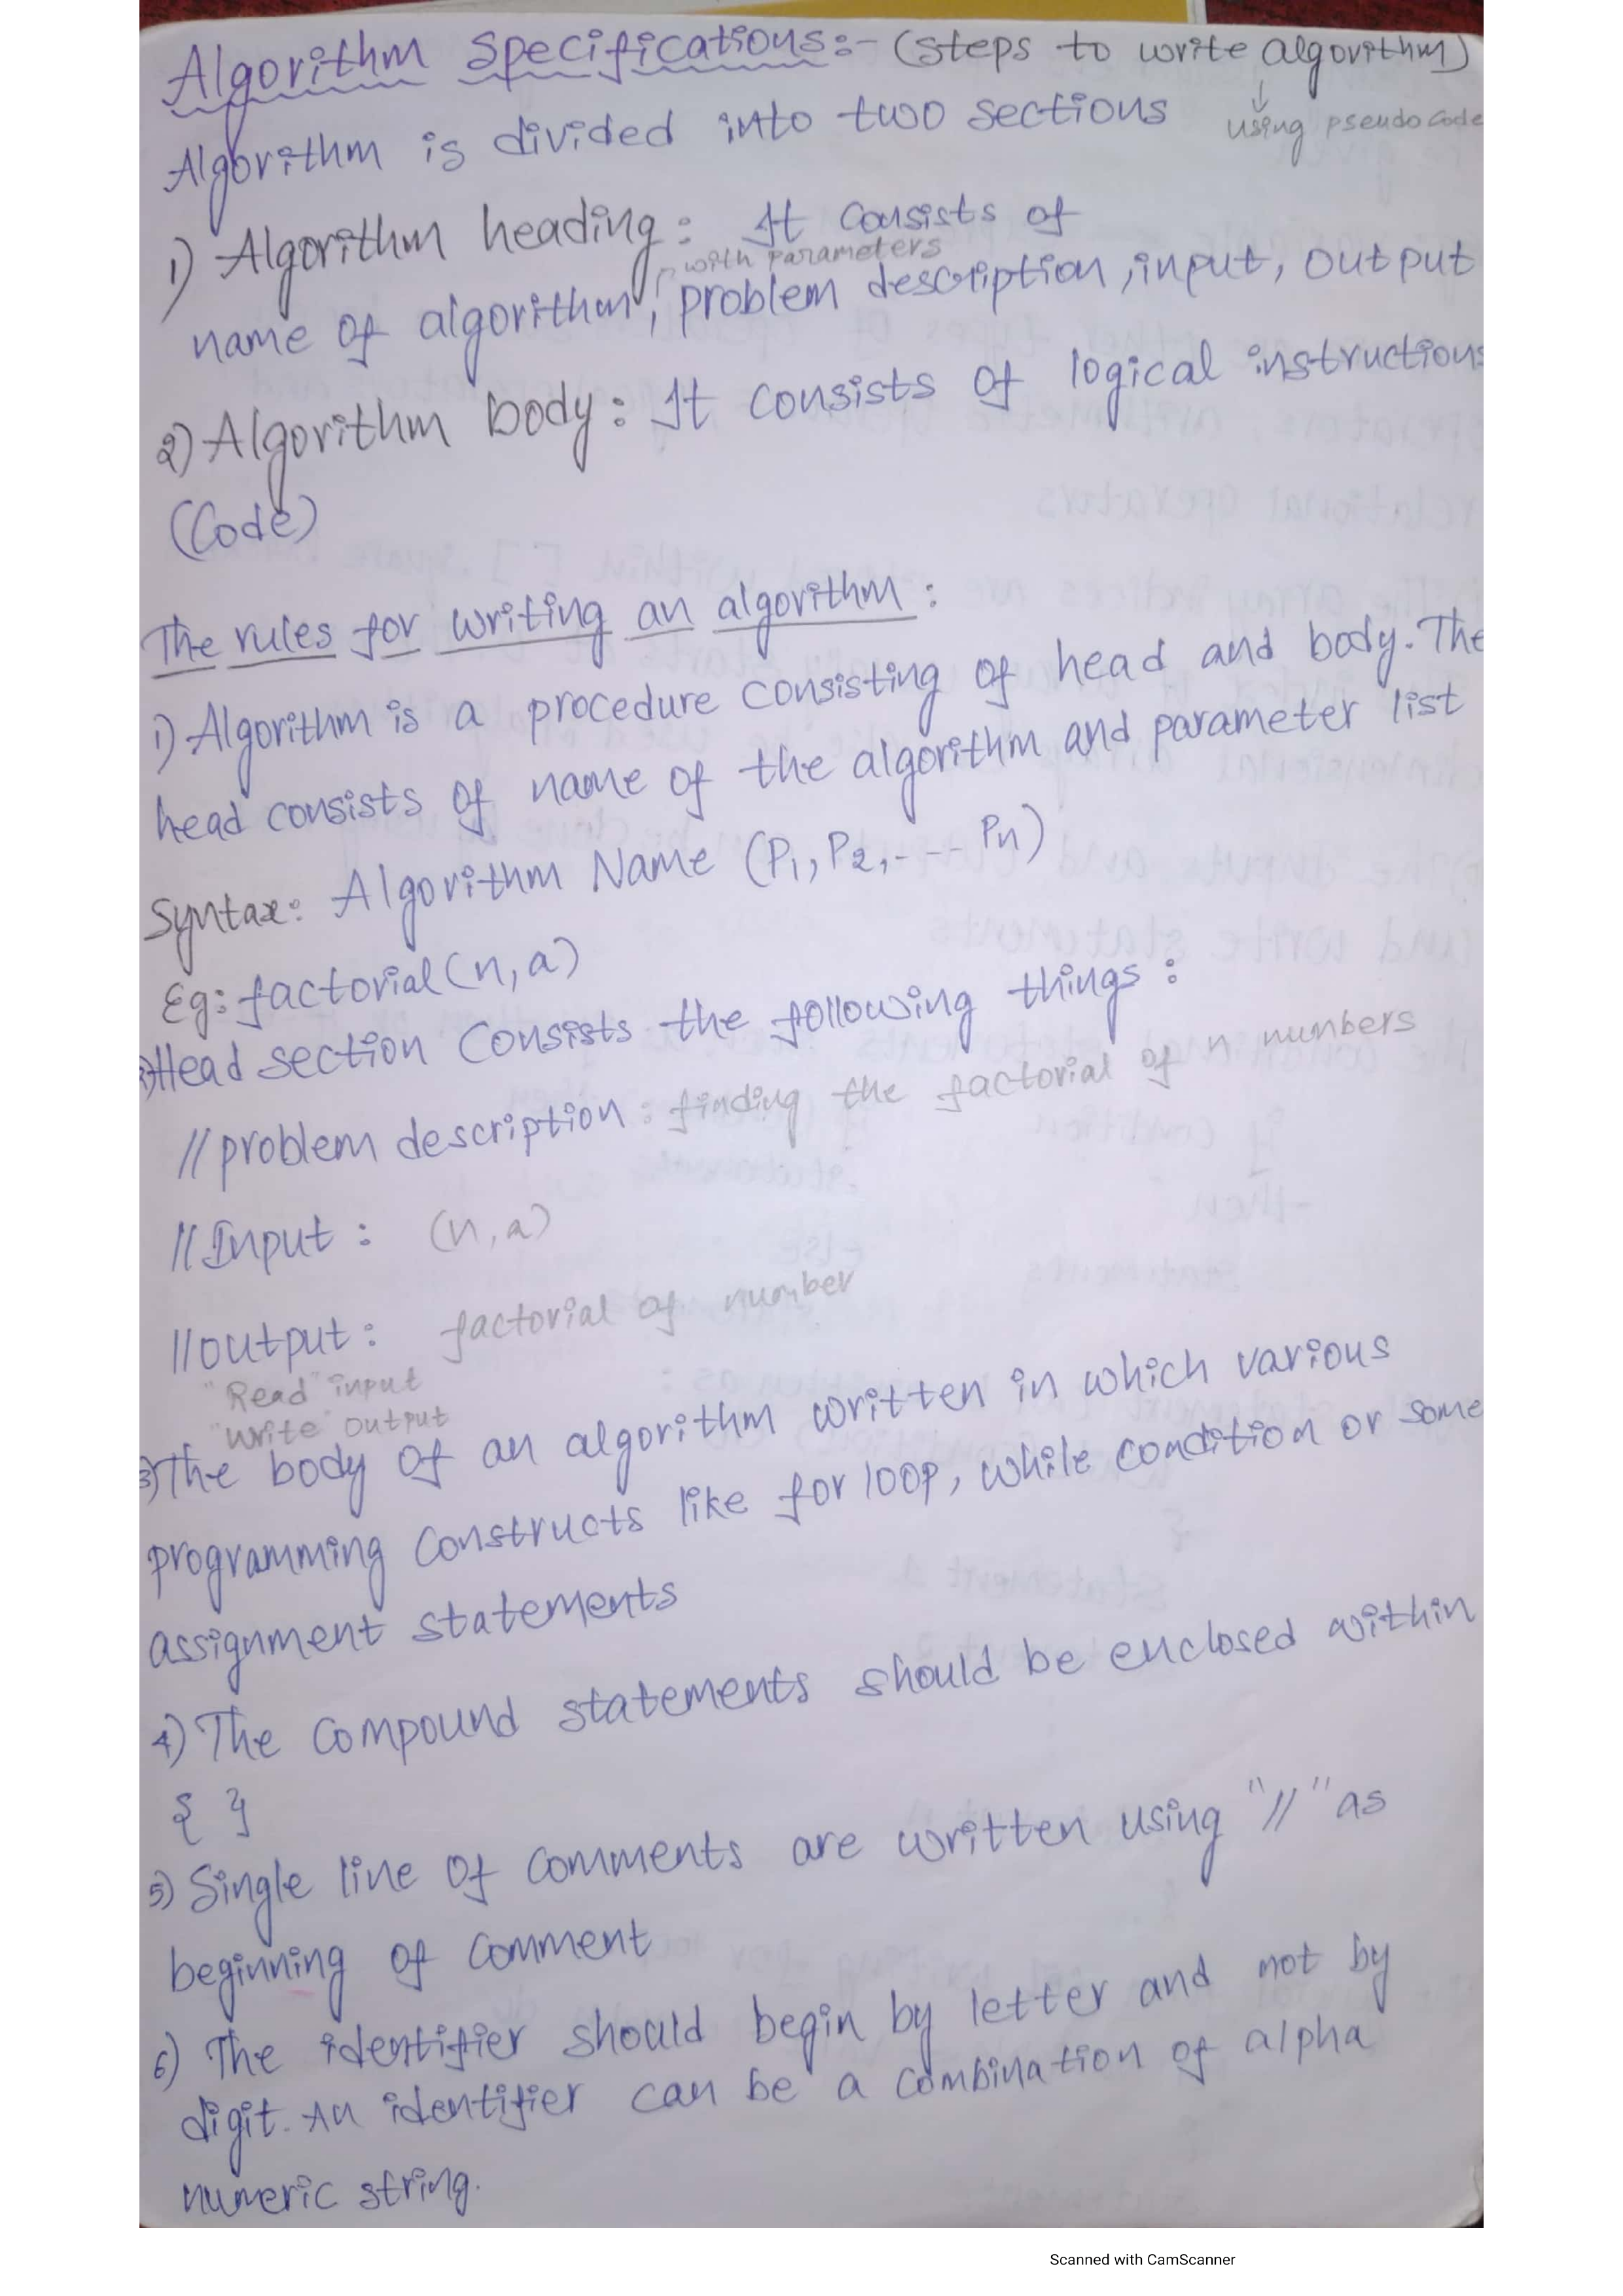 Algorithm Specifications:- (steps to write algorithm)
↓
using pseudo code
Algorithm is divided into two sections
1) Algorithm heading: It consists of
with parameters
name of algorithm, problem description, input, output
2) Algorithm body: It consists of logical instructions
(Code)
The rules for writing an algorithm:
1) Algorithm is a procedure consisting of head and body. The
head consists of name of the algorithm and parameter list
Syntax: Algorithm Name (P1, P2, - - - Pn)
Eg: factorial(n, a)
2) Head section consists the following things:
// problem description: finding the factorial of n numbers
// Input: (n, a)
// output: factorial of number
"Read" input
"Write" output
3) The body of an algorithm written in which various
programming constructs like for loop, while condition or some
assignment statements
4) The compound statements should be enclosed within
{ }
5) Single line of comments are written using "//" as
beginning of comment
6) The identifier should begin by letter and not by
digit. An identifier can be a combination of alpha
numeric string.
Scanned with CamScanner